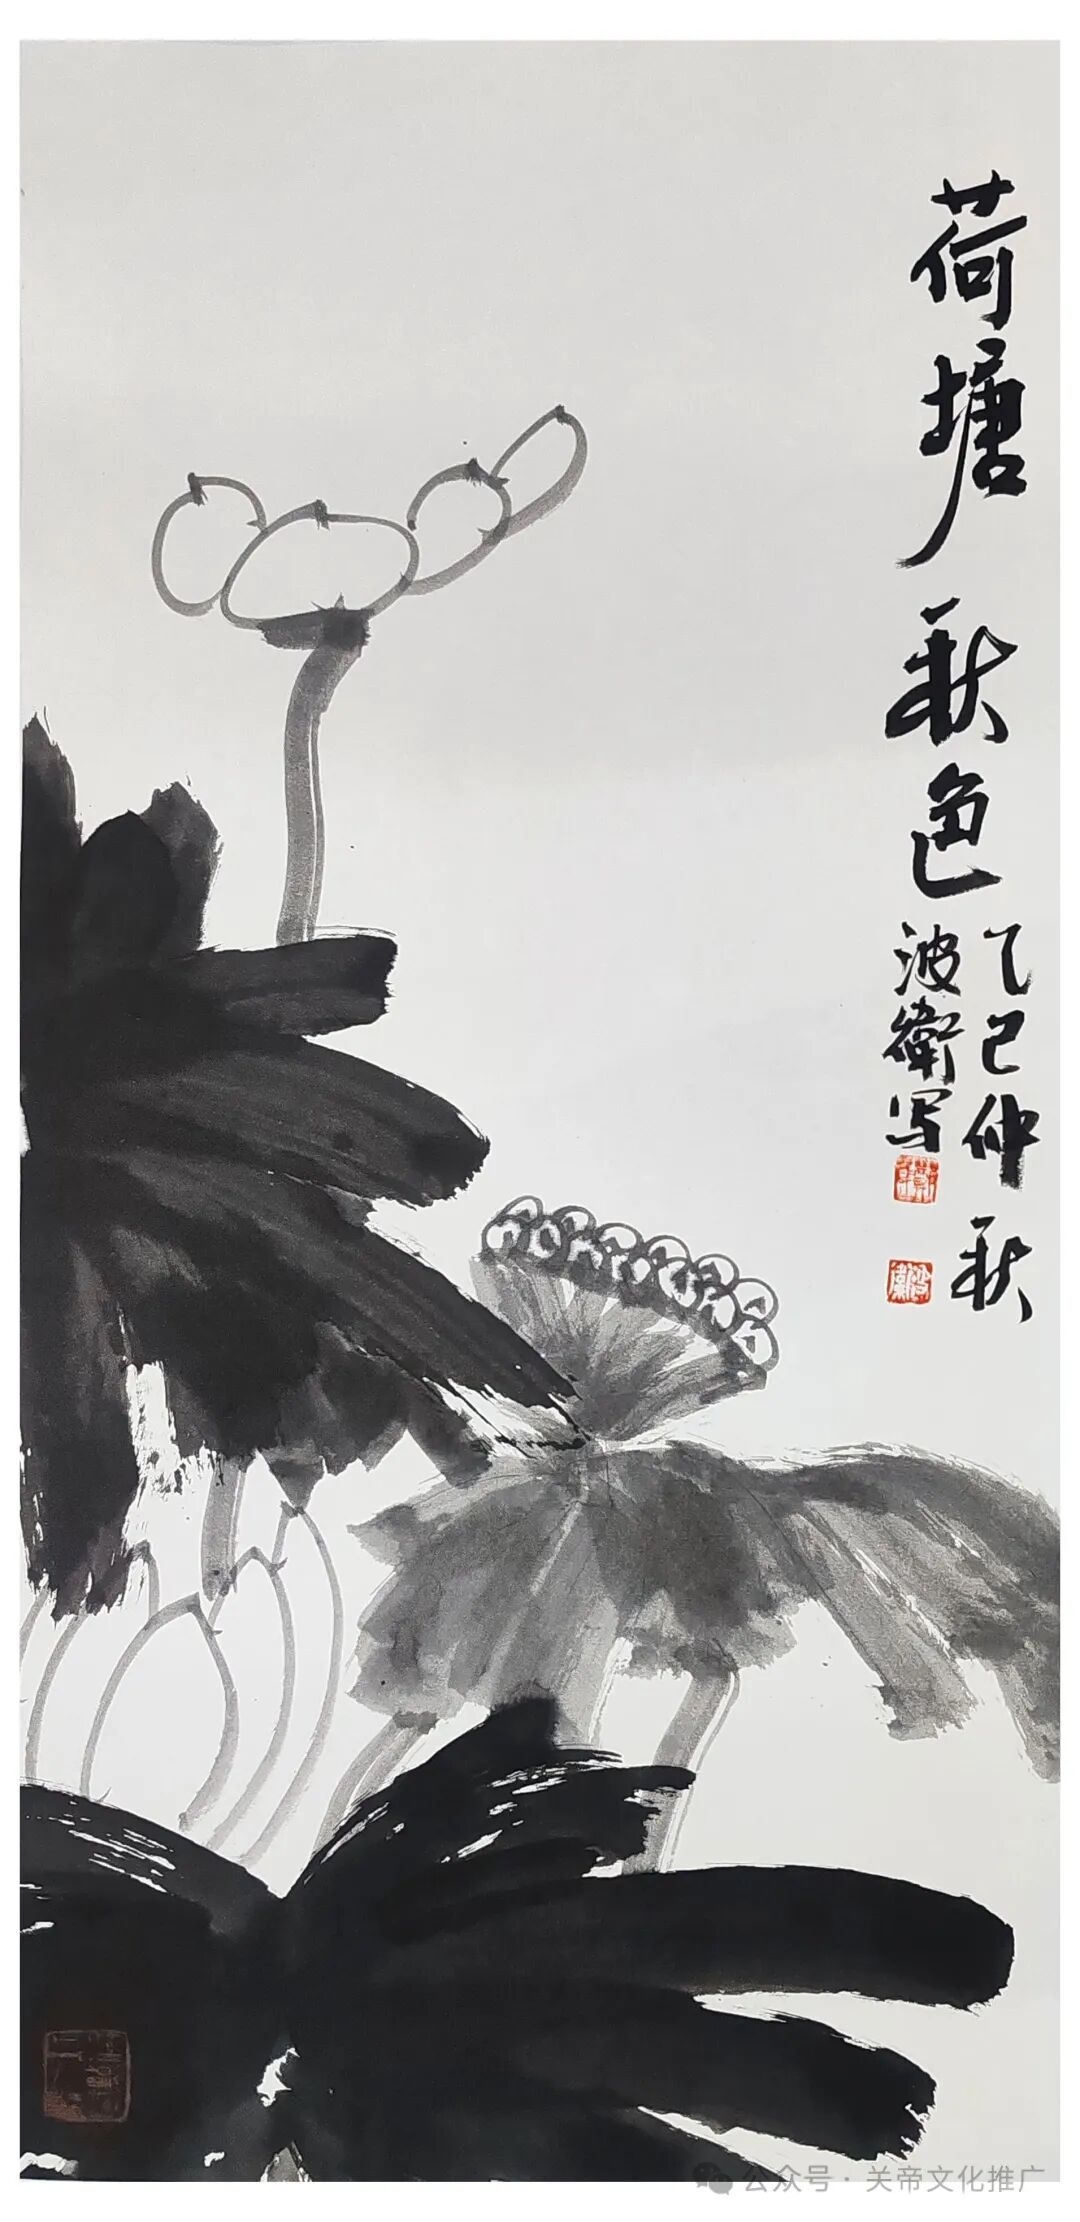 荷塘秋色
乙巳仲秋
波衛写
波衛
公众号·关帝文化推广